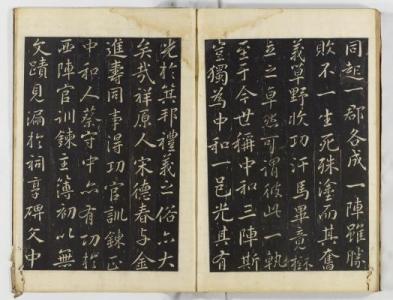 同起一郡各成一陣雖勝
敗不一生死殊塗而其奮
義草野收功汗馬畢竟樹
立之卓然可謂彼此一執
至于今世稱中和三陣斯
豈獨為中和一邑光其有
光於其邦禮義之俗亦大
矣哉祥原人宋德春与金
進壽同事得功官訓鍊正
中和人蔡守中亦有功於
西陣官訓鍊主簿初以無
文蹟見漏於祠享碑文中